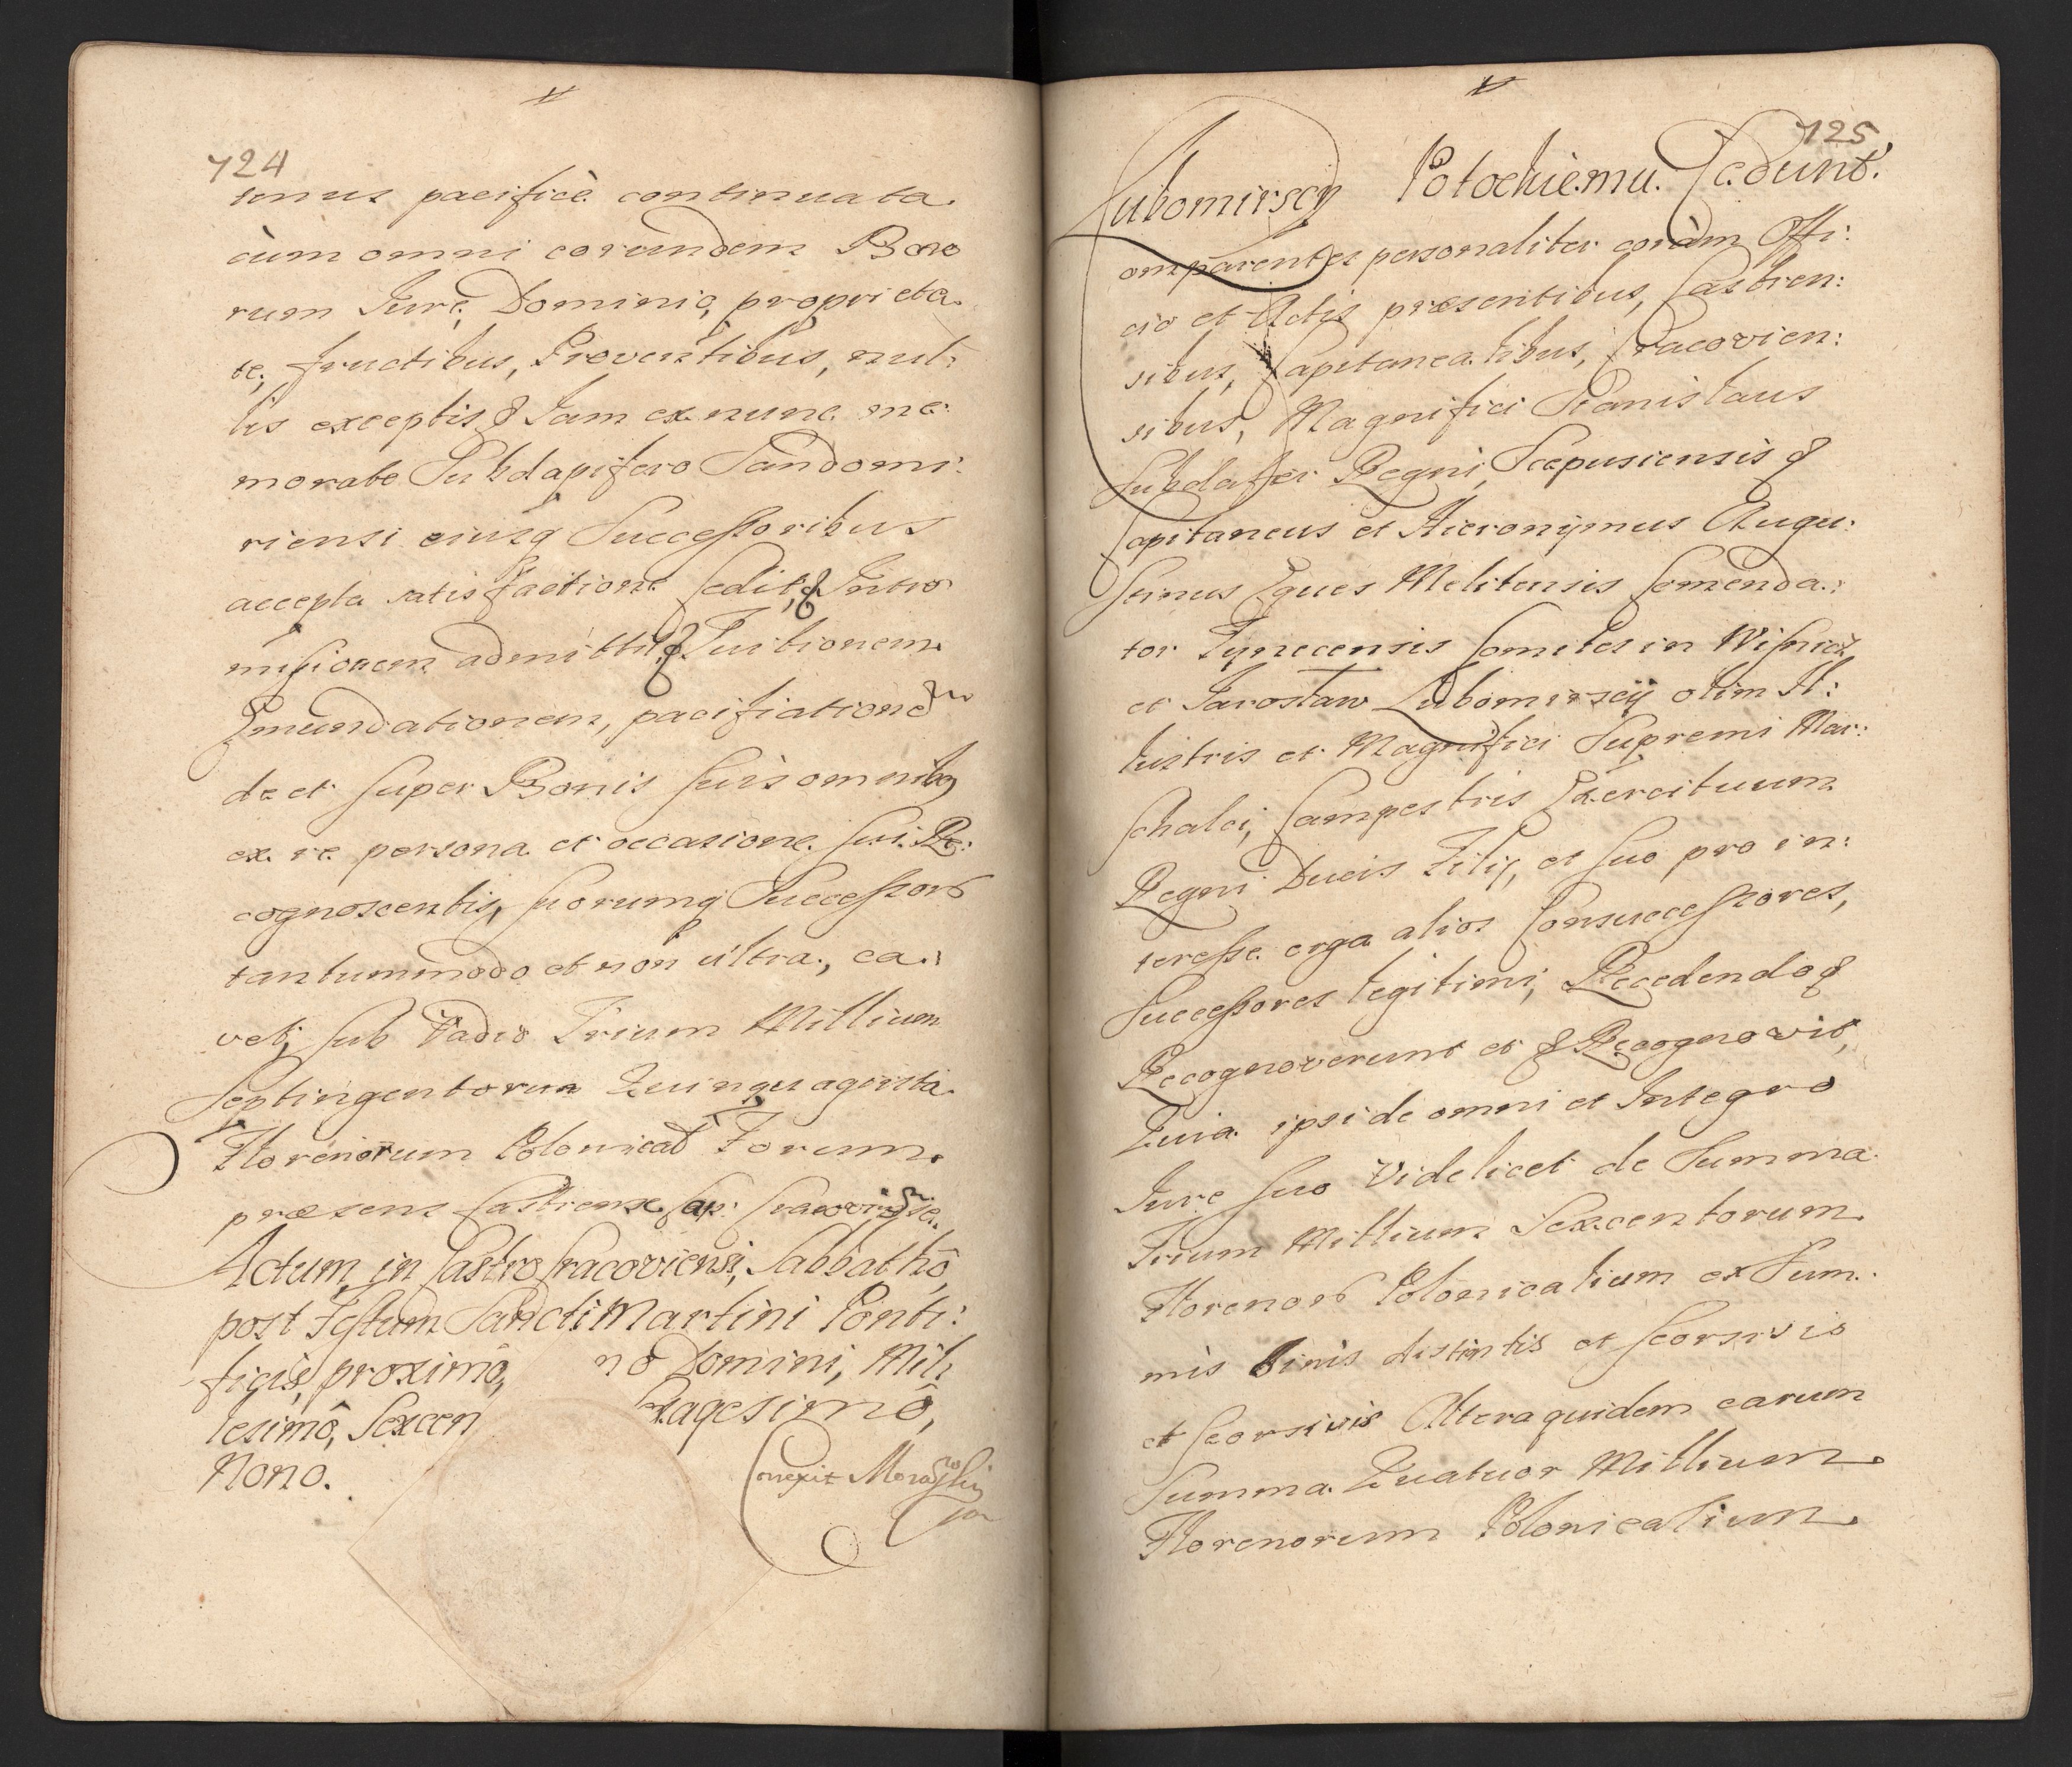 724
tenus pacificè continuata.
cùm omni eorundem Bono
rum Jure, Dominio, proprieta.
te, fructibus, Proventibus, nul:
lis exceptis & Jam ex nunc me:
morato Subdapifero Sandomi:
riensi eiusq Successoribus
accepta satisfactione Cedit, & Intro
missionem admittit, & Tuitionem
Emundationem, pacificationē
de et super Bonis suis omnibq
ex re persona et occasione sui Re:
cognoscentis, suorumq Successorū
tantummodo et non ultra, ca:
vet, sub Vadio Trium Millium
Septingentorum Quinquaginta.
Florenorum Polonical Forum
præsens Castrense Cap: Cracovien̄se.
Actum in Castro Cracoviensi, Sabbathô
post Festum Sancti Martini Ponti:
ficis, proximô, no Domini, Mil
lesimô, Sexcen xagesimô,
Nono.
Correxit
725
Lubomirscy Potockiemu. Cedunt.
omparentes personaliter coràm Offi:
cio et Actis præsentibus, Castren:
sibus, Capitanea.libus, Cracovien:
sibus, Magnifici Stanislaus
Subdapifer Regni, Scepusiensis &
Capitaneus et Hieronymus Augu:
stinus Eques Melitensis Comenda.:
tor Tynecensis Comites in Wisnicz
et Jaroslaw Lubomirscÿ olim Il:
lustris et Magnifici Supremi Mar:
schalci, Campestris Exercituum
Regni Ducis Filij, et suo pro in:
teresse erga alios Consuccessores,
Successores legitimi, Recedendo &
Recognoverunt et & Recognovit,
Quia ipsi de omni et Integro
Jure suo Videlicet de Summa
Trium Millium Sexcentorum
Florenorū Polonicalium ex Sum:
mis binis distintis et seorsivis
et seorsivis Altera quidem earum
Summa Quatuor Millium
Florenorum Polonicalium